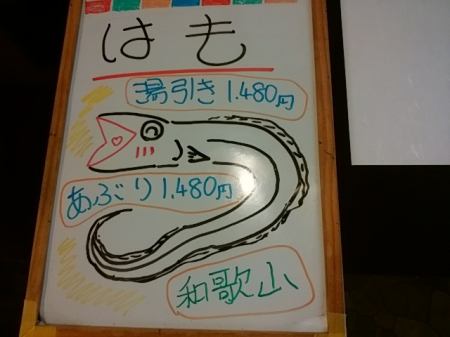 はも
湯引き 1.480円
あぶり 1.480円
和歌山